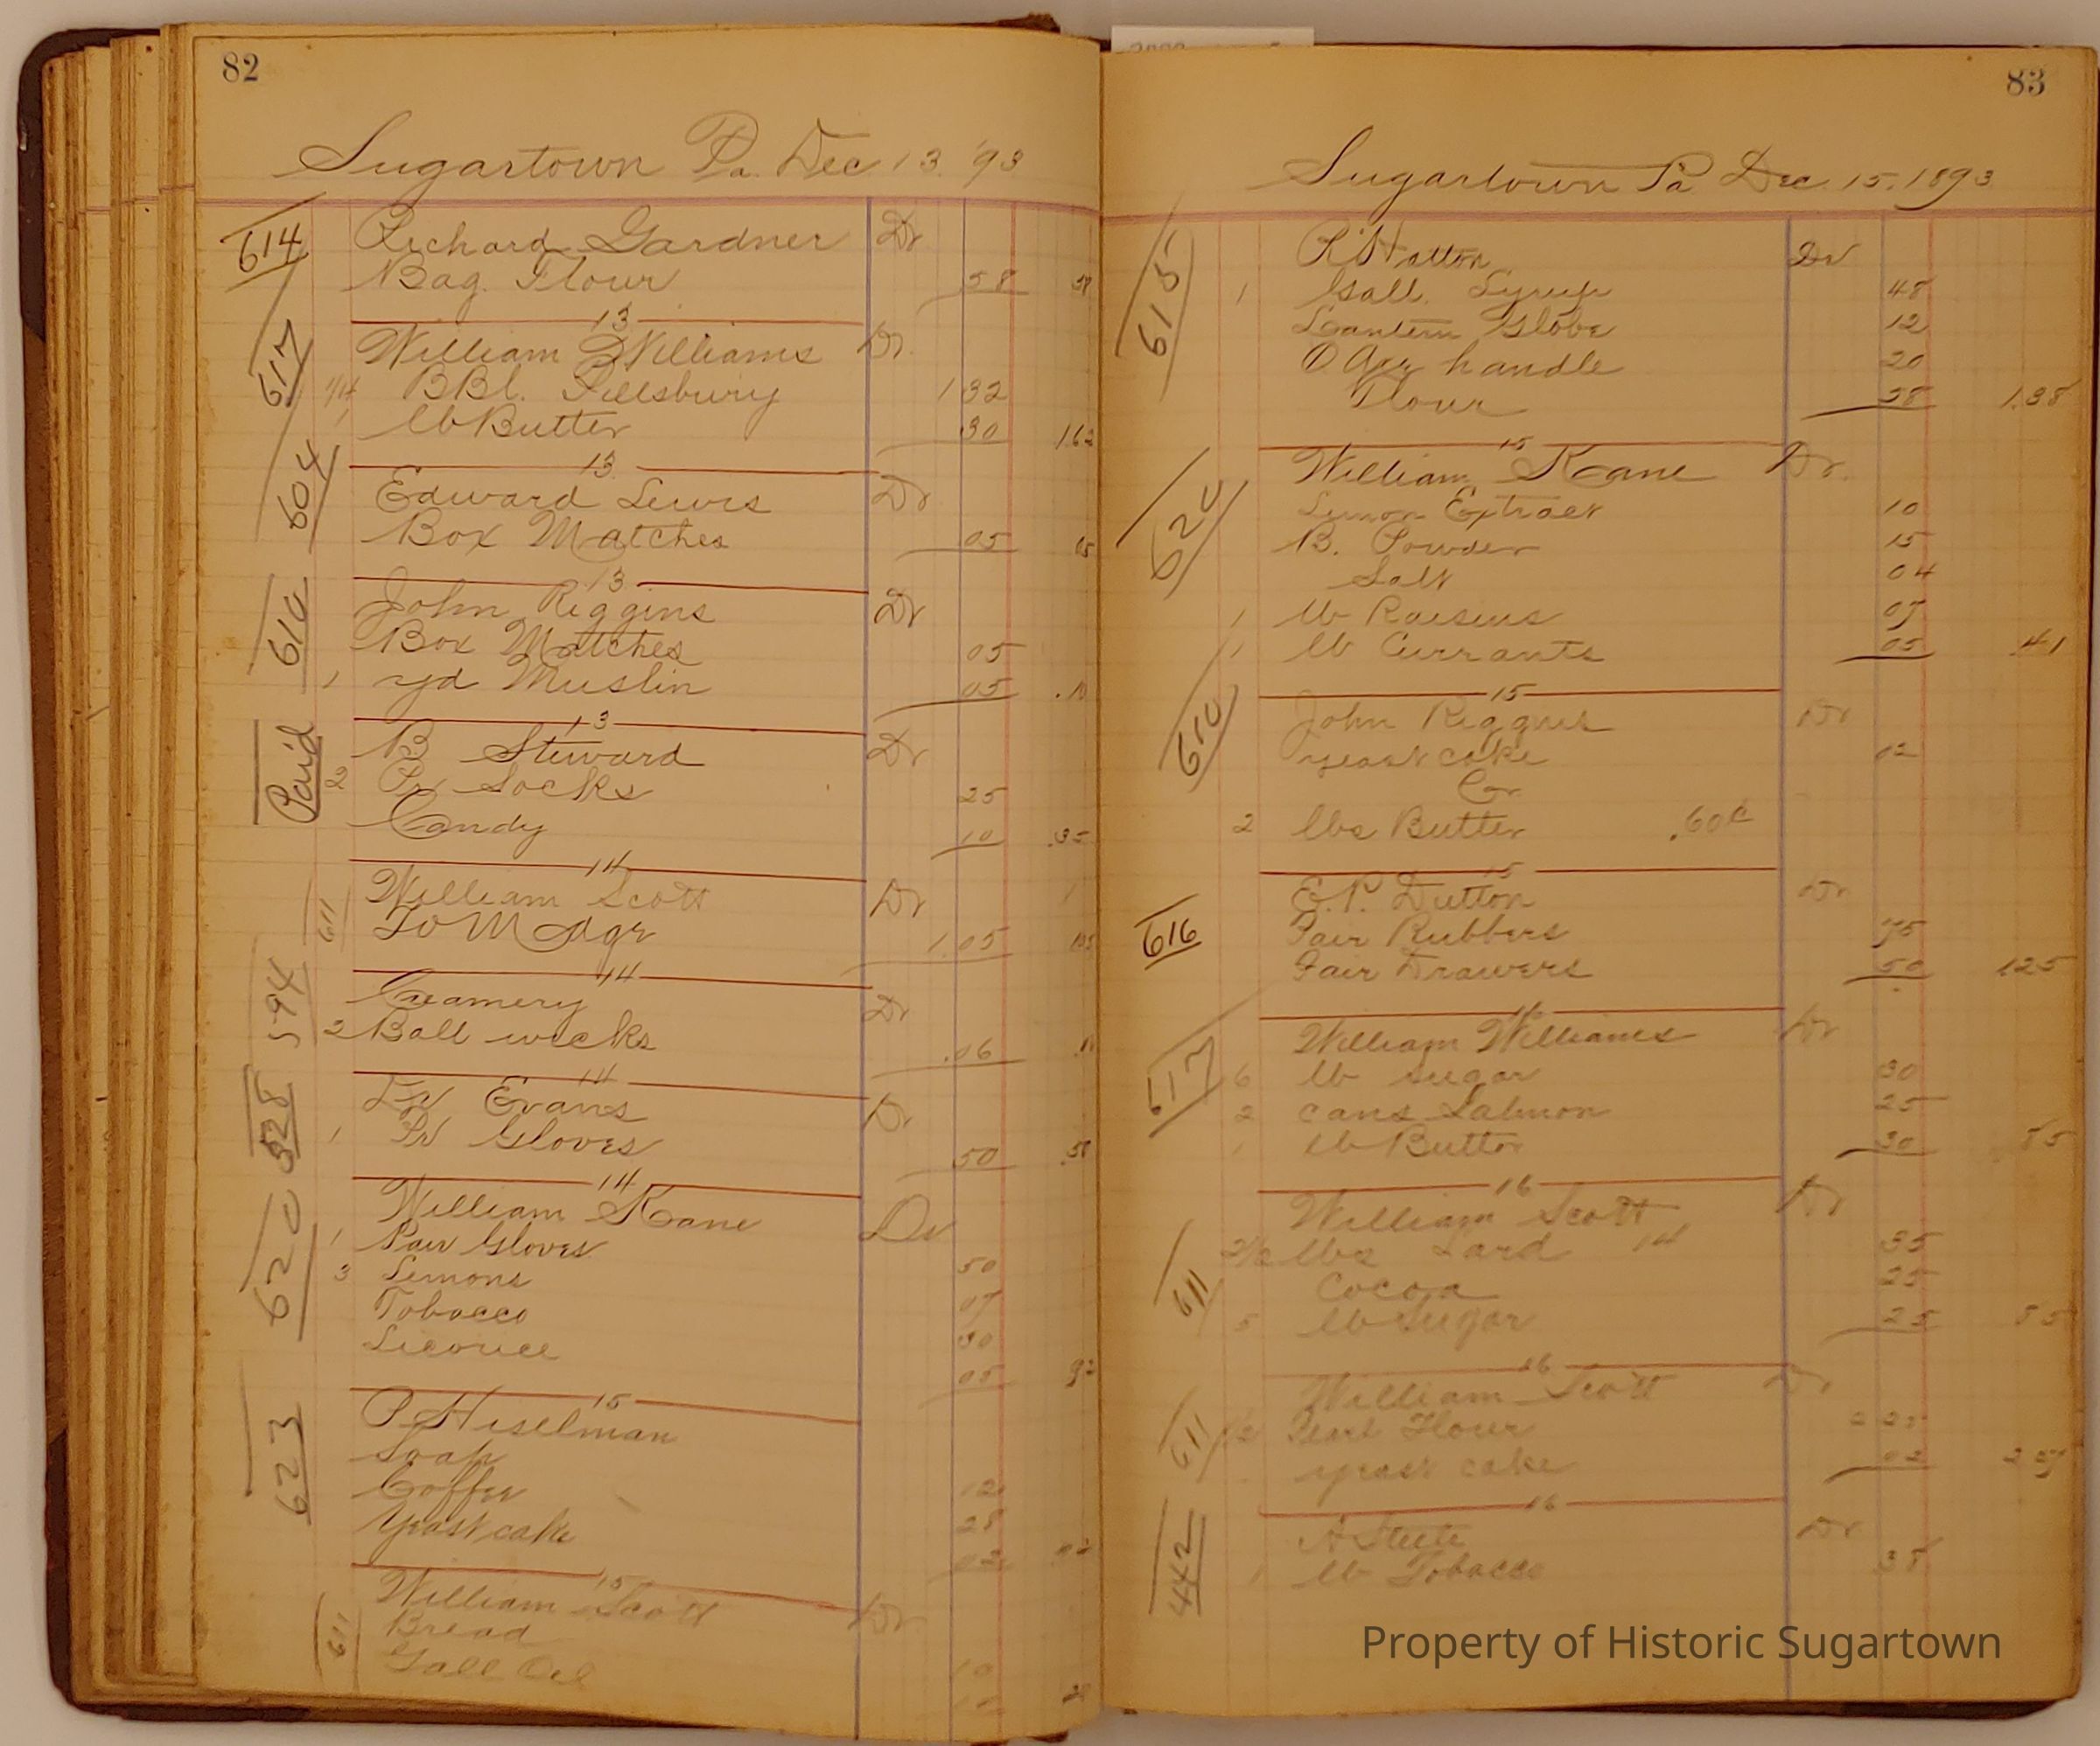 82
Sugartown Pa. Dec 13. '93
614 Richard Gardner Dr
Bag. Flour 58 58
13
617 William Williams Dr.
1/4 BBl. Pillsbury 1 32
1 lb Butter 30 162
13
604 Edward Lewis Dr
Box Matches 05 05
13
610 John Riggins Dr
Box Matches 05
1 yd Muslin 05 .10
13
Paid B Steward Dr
2 Pr Socks 25
Candy 10 .35
14
611 William Scott Dr
To M 1.05 105
14
594 Creamery Dr
2 Ball wicks .06
14
528 Evans Dr
1 Pr Gloves 50
14
620 William Kane Dr
1 Pair Gloves 50
3 Lemons 07
Tobacco 30
Licorice 05 92
15
623 P Hiselman
Soap 12
Coffee 28
Yeast cake 02
15
611 William Scott Dr
Bread 10
Gall Oil
83
Sugartown Pa Dec. 15. 1893
615 Hatton Dr
1 Gall. Syrup 48
Lantern Globe 12
Axe handle 20
Flour 58 1.38
15
620 William Kane Dr.
Lemon Extract 10
B. Powder 15
Salt 04
1 lb Raisins 07
1 lb Currants 05 .41
15
610 John Riggins Dr
yeast cake 02
Cr
2 lbs Butter .60c
15
616 E.P. Dutton Dr
Pair Rubbers 75
Pair Drawers 50 125
16
617 William Williams Dr
6 lb sugar 30
2 cans Salmon 25
1 lb Butter 30 85
16
611 William Scott Dr
2 1/2 lbs Lard 14 35
Cocoa 25
5 lb Sugar 25 85
16
611 William Scott Dr
1/2 Pearl Flour 2 25
yeast cake 02 2 27
16
442 A Steele Dr
1 lb Tobacco 38
Property of Historic Sugartown